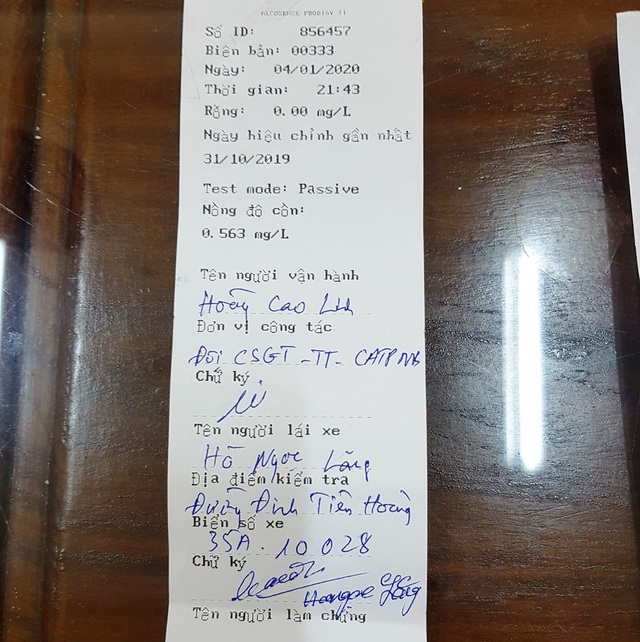 ALCOSENSE-PRODIGY II
Số ID: 856457
Biên bản: 00333
Ngày: 04/01/2020
Thời gian: 21:43
Rỗng: 0.00 mg/L
Ngày hiệu chỉnh gần nhất
31/10/2019
Test mode: Passive
Nồng độ cồn:
0.563 mg/L
Tên người vận hành
Hoàng Cao Linh
Đơn vị công tác
Đội CSGT-TT-CATP NB
Chữ ký
Tên người lái xe
Hồ Ngọc Lăng
Địa điểm/kiểm tra
Đường Đinh Tiên Hoàng
Biển số xe
35A.10028
Chữ ký
Tên người làm chứng